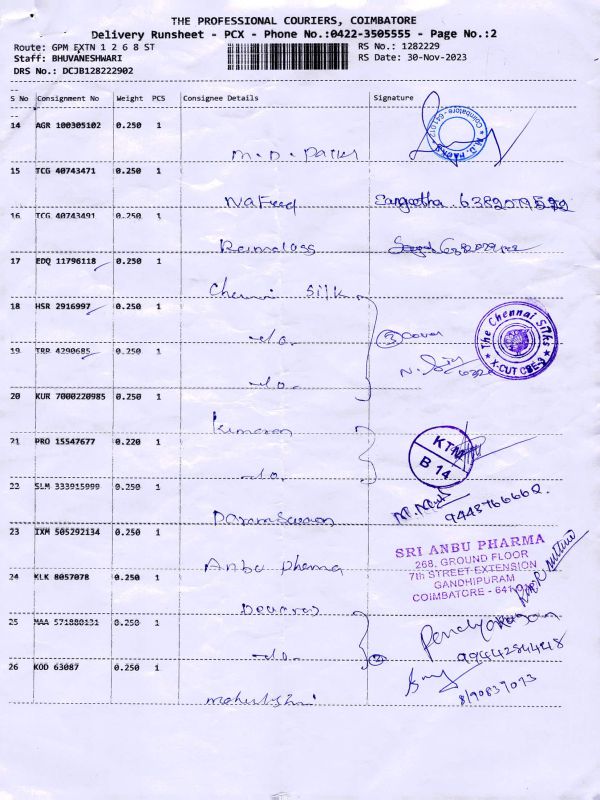 THE PROFESSIONAL COURIERS, COIMBATORE
Delivery Runsheet - PCX - Phone No.:0422-3505555 - Page No.:2
Route: GPM EXTN 1 2 6 8 ST RS No.: 1282229
Staff: BHUVANESHWARI RS Date: 30-Nov-2023
DRS No.: DCJB128222902
S No Consignment No Weight PCS Consignee Details Signature
14 AGR 100305102 0.250 1
M.D. Packs
M.D. PACKS Coimbatore - 641012
15 TCG 40743471 0.250 1
Nafeed Sangeetha 6382079592
16 TCG 40743491 0.250 1
17 EDQ 11796118 0.250 1
Chennai Silk
18 HSR 2916997 1 0.250 1
-do. 3 Cover
The Chennai Silks X-CUT CBE-3
19 TRR 4290685 0.250 1
-do.
20 KUR 7000220985 0.250 1
Kumaran
21 PRO 15547677 0.220 1
-do.
KTM
B 14
22 SLM 333915999 0.250 1
9443766662.
23 IXM 505292134 0.250 1
Anbu Pharma
SRI ANBU PHARMA
268, GROUND FLOOR
7th STREET-EXTENSION
GANDHIPURAM
COIMBATORE - 6410
24 KLK 8057078 0.250 1
Devaraj
25 MAA 571880131 0.250 1
-do. 2
9944284448
26 KOD 63087 0.250 1